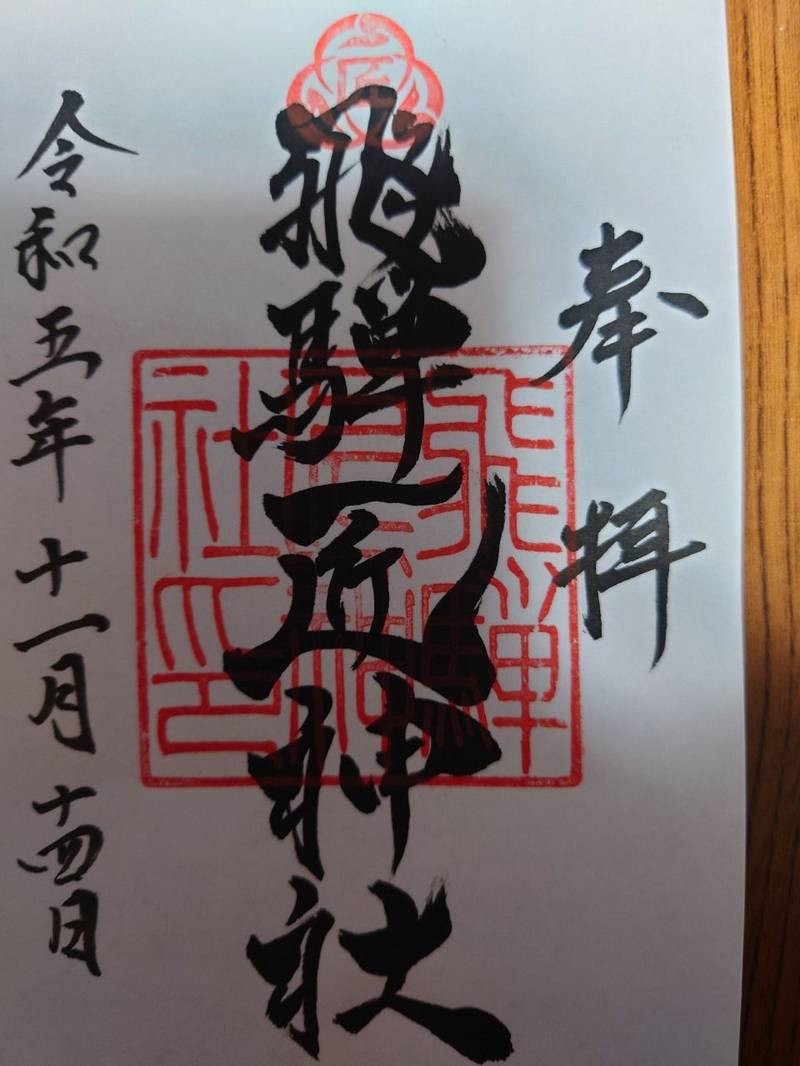 奉拝
飛騨匠神社
飛騨匠神社印
令和五年十一月十四日